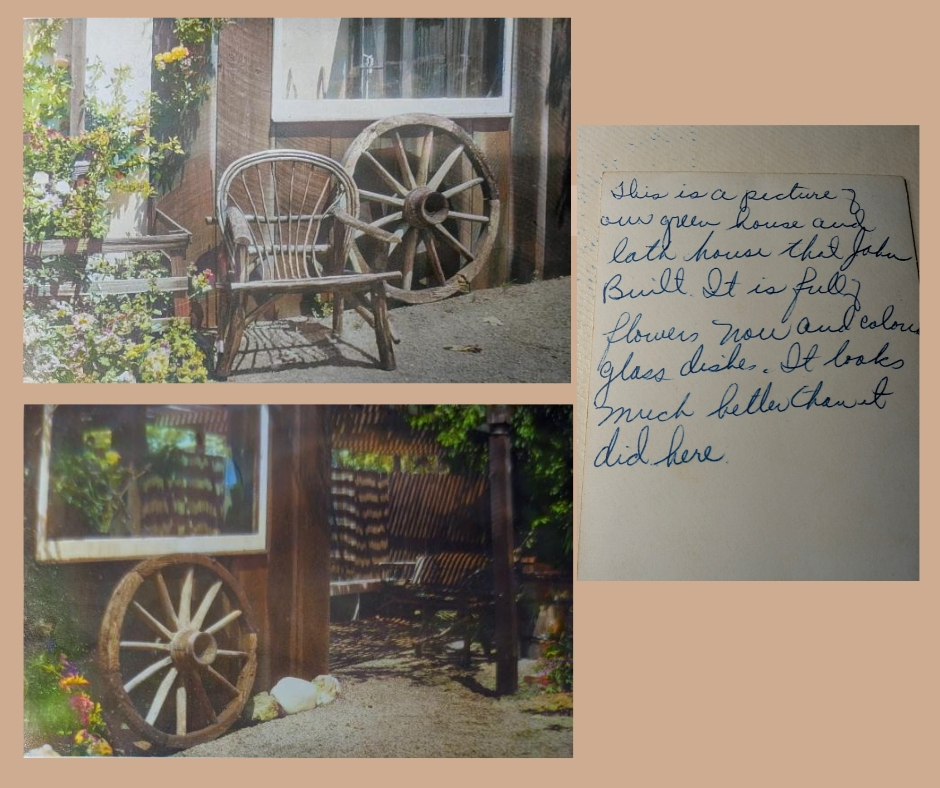 This is a picture of
our green house and
lath house that John
Built. It is full of
flowers now and colored
glass dishes. It looks
much better than it
did here.